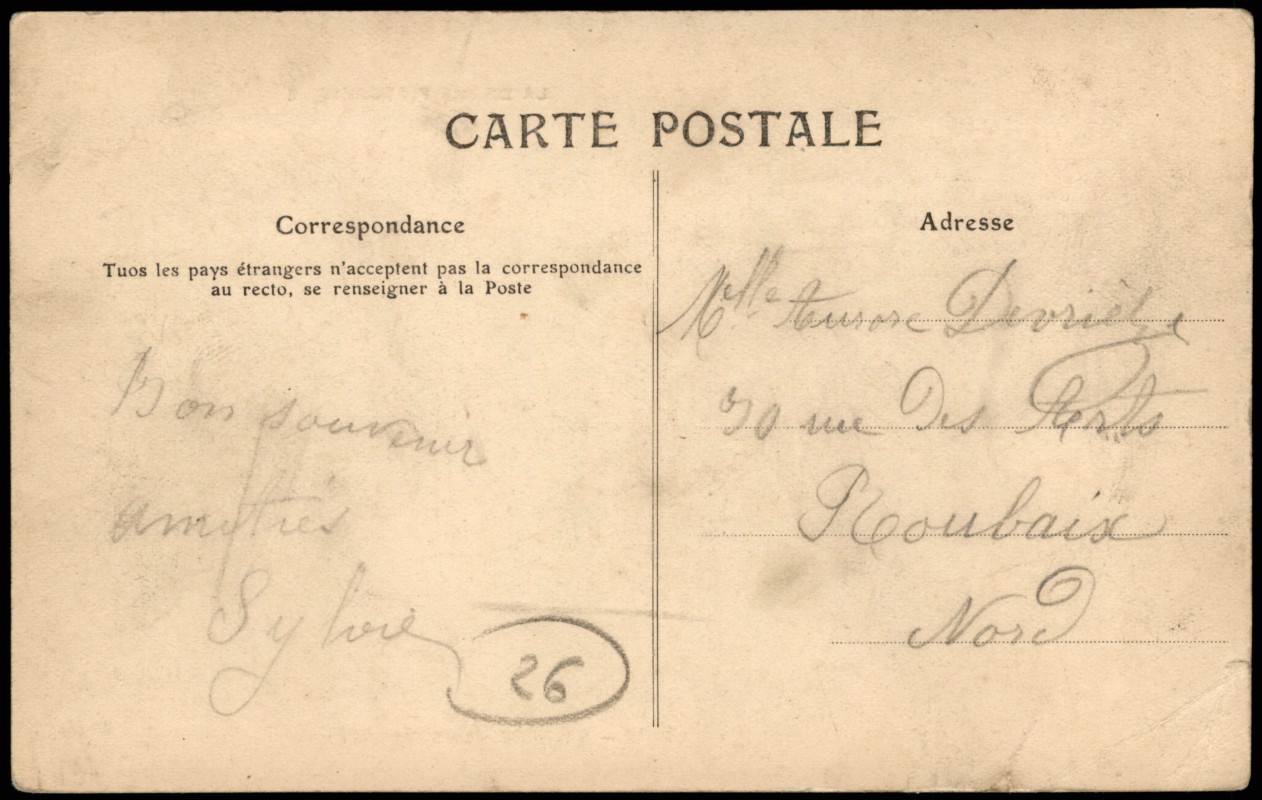 CARTE POSTALE
Correspondance
Tuos les pays étrangers n'acceptent pas la correspondance
au recto, se renseigner à la Poste
Bon souvenir
amitiés
Sylvie
26
Adresse
Melle Aurore
rue des
Roubaix
Nord